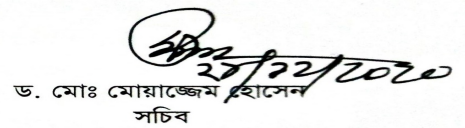 ২৮/১২/২০২০
ড. মোঃ মোয়াজ্জেম হোসেন
সচিব